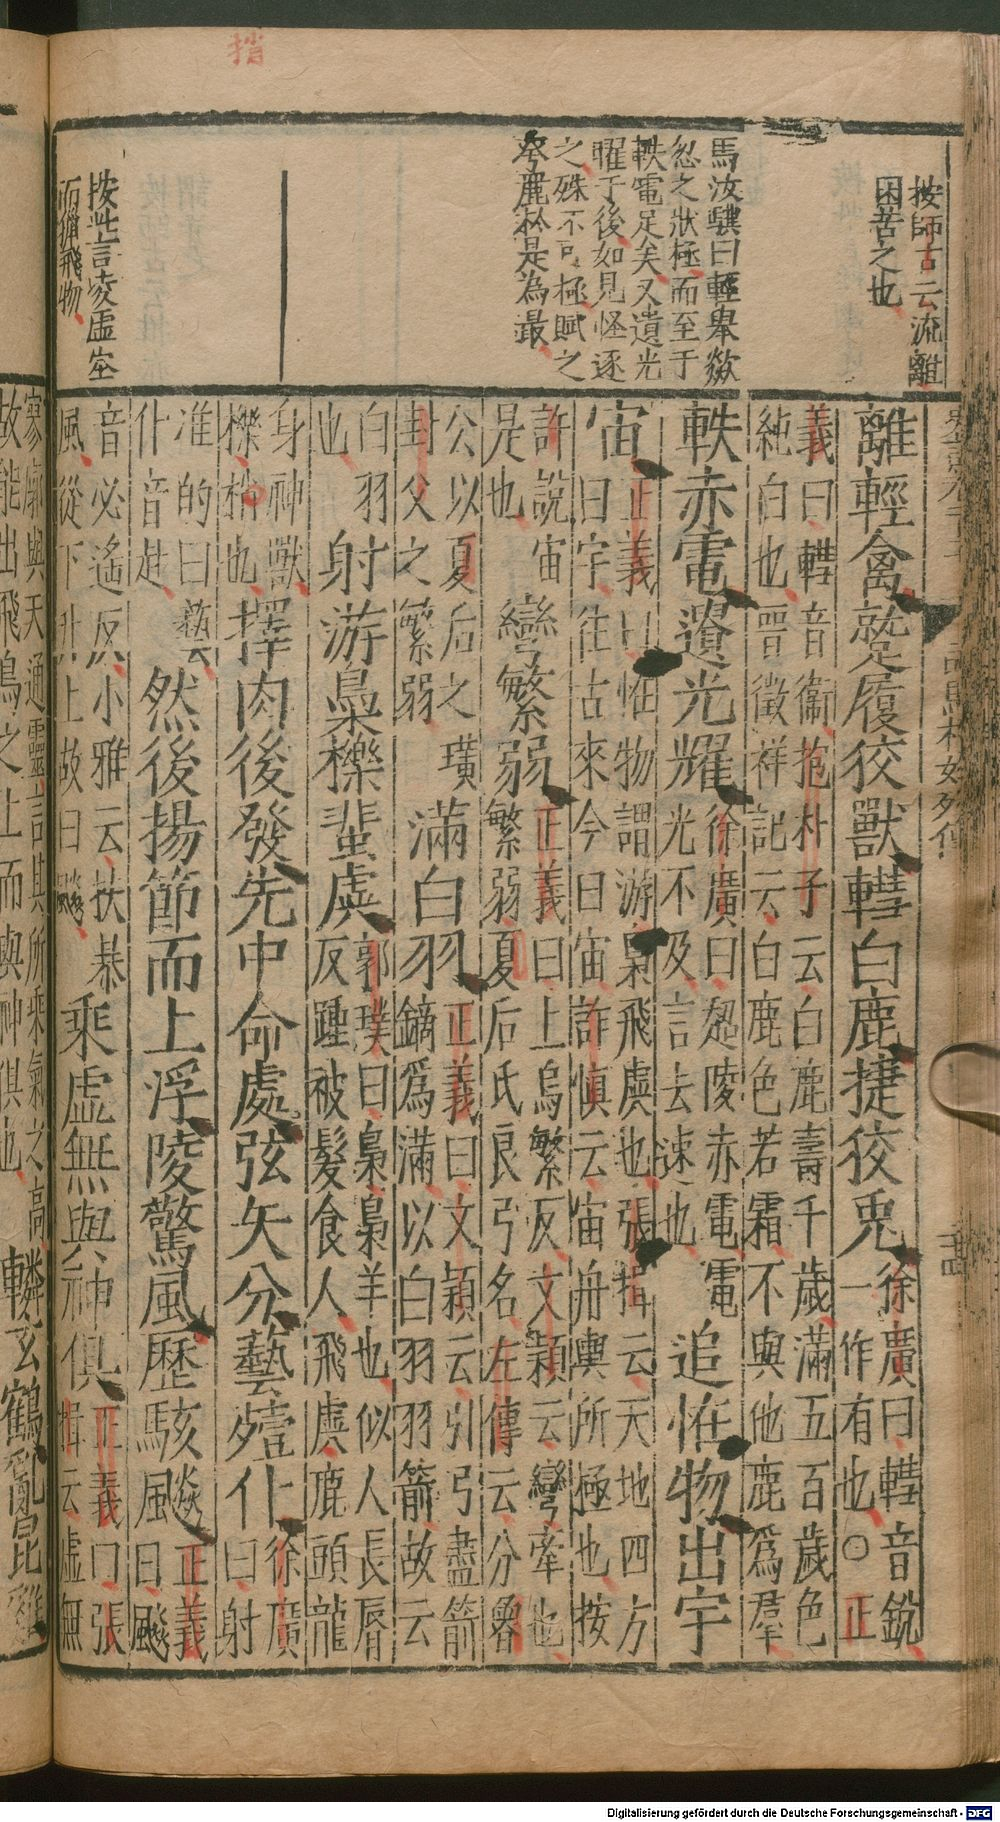 揹
按師古云流離
困苦之也
馬汝驥曰輕舉歘
忽之狀極而至于
軼電足矣又遺光
曜于後如見怪逐
之殊不可極賦之
夸麗於是為最
按此言凌虛空
而獵飛物
離輕禽蹴履狡獸轊白鹿捷狡兎
徐廣曰轊音銳
一作有也○正
義曰轊音衞抱朴子云白鹿壽千歲滿五百歲色
純白也晋徵祥記云白鹿色若霜不與他鹿爲羣
軼赤電遺光耀
徐廣曰超陵赤電電
光不及言去速也
追恠物出宇
宙
正義曰恠物謂游梟飛䖍也張揖云天地四方
曰宇往古來今曰宙許愼云宙舟輿所極也按
許說宙
是也
彎繁弱
正義曰上烏繁反文頴云彎牽也
繁弱夏后氏良弓名左傳云分魯
公以夏后之璜
封父之繁弱
滿白羽
正義曰文頴云引弓盡箭
鏑爲滿以白羽羽箭故云
白羽
也
射游梟櫟蜚虡
郭璞曰梟梟羊也似人長脣
反踵被髮食人飛虡鹿頭龍
身神獸
櫟梢也
擇肉後發先中命處弦矢分藝殪仆
徐廣
曰射
准的曰藝
仆音赴
然後揚節而上浮陵驚風歷駭飈
正義
風曰飈
音必遙反小雅云扶暴
風從下升上故曰飈
乘虛無與神俱
正義曰張
揖云虛無
寥廓與天通靈言其所乘氣之高
故能出飛鳥之上而與神俱也
轔玄鶴亂昆雞
Digitalisierung gefördert durch die Deutsche Forschungsgemeinschaft - DFG